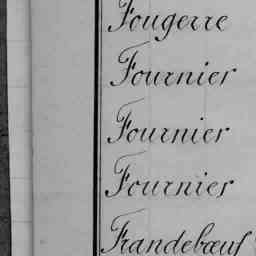 Fougerre
Fournier
Fournier
Fournier
Frandebœuf